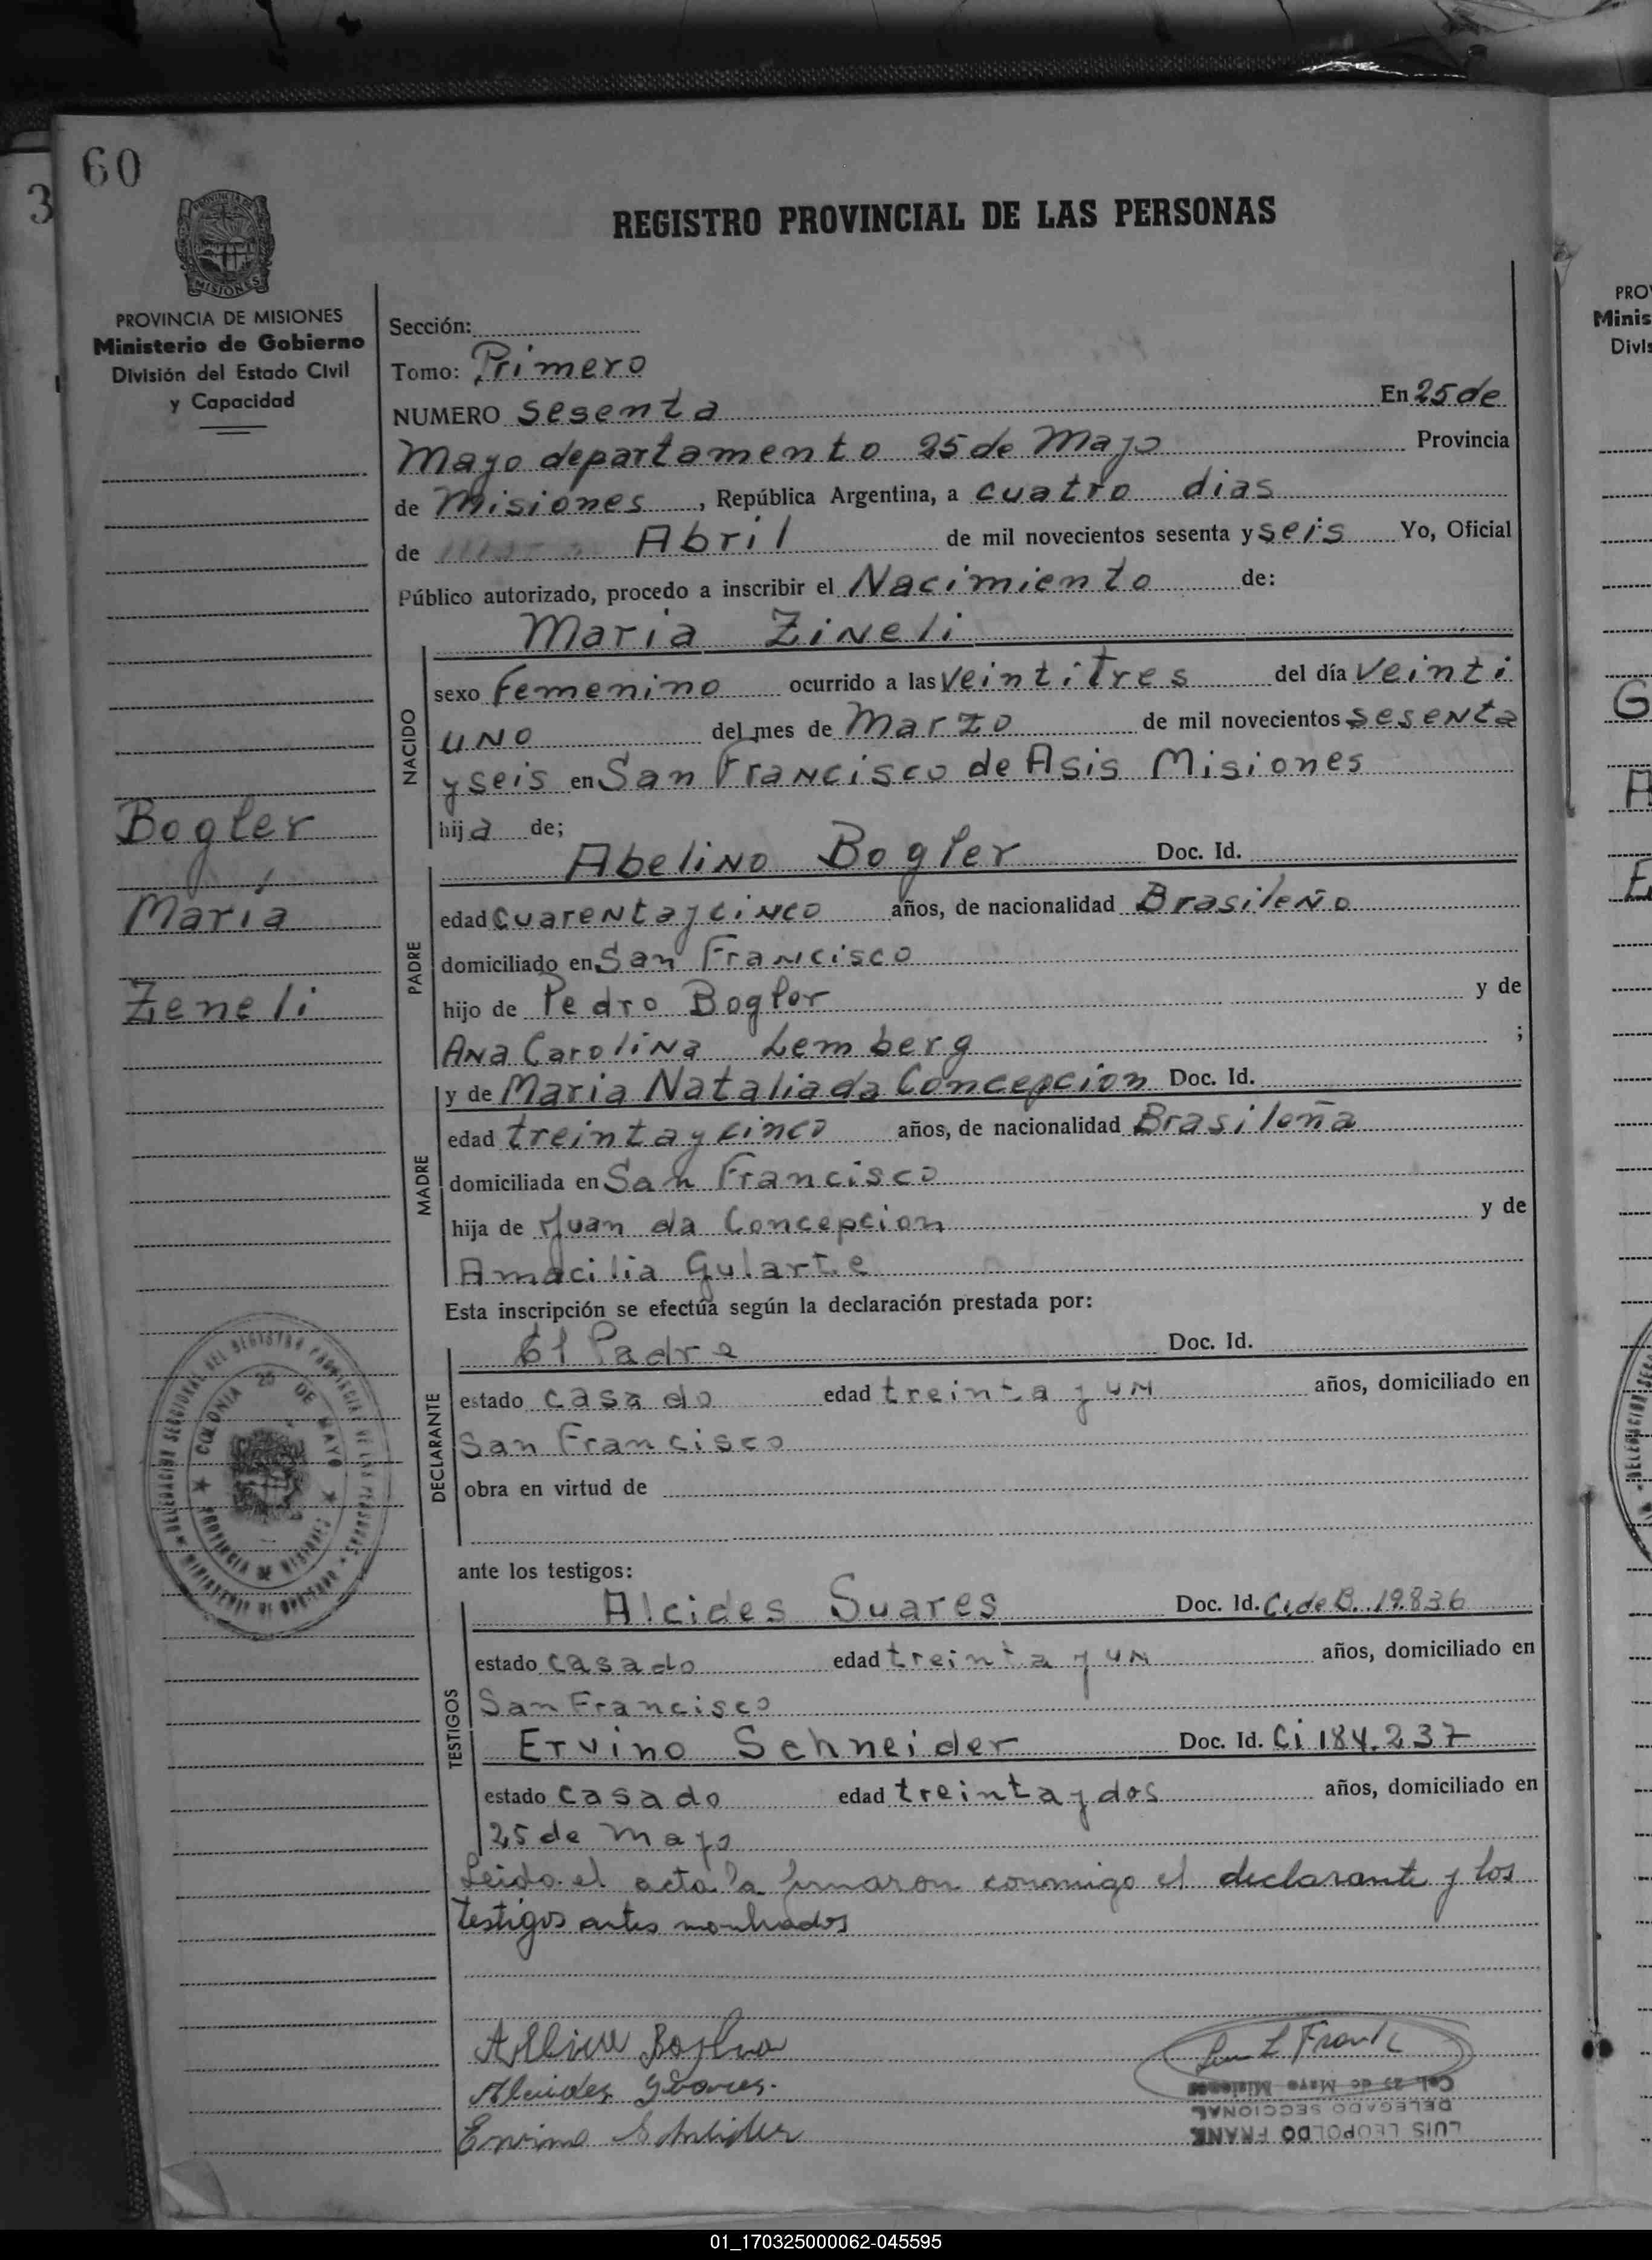 60
3
REGISTRO PROVINCIAL DE LAS PERSONAS
MISIONES
PROVINCIA DE MISIONES
Ministerio de Gobierno
División del Estado Civil
y Capacidad
Sección:
Tomo: Primero
NUMERO sesenta En 25 de
Mayo departamento 25 de Mayo Provincia
de Misiones, República Argentina, a cuatro dias
de Abril de mil novecientos sesenta y seis Yo, Oficial
Público autorizado, procedo a inscribir el Nacimiento de:
Maria Zineli
NACIDO
sexo femenino ocurrido a las veintitres del día veinti
uno del mes de Marzo de mil novecientos sesenta
y seis en San Francisco de Asis Misiones
hija de;
Bogler
María
Zeneli
Abelino Bogler Doc. Id.
PADRE
edad cuarenta y cinco años, de nacionalidad Brasileño
domiciliado en San Francisco
hijo de Pedro Bogler y de
Ana Carolina Lemberg ;
y de Maria Natalia da Concepcion Doc. Id.
MADRE
edad treinta y cinco años, de nacionalidad Brasileña
domiciliada en San Francisco
hija de Juan da Concepcion y de
Amacilia Gularte
Esta inscripción se efectúa según la declaración prestada por:
El Padre Doc. Id.
DECLARANTE
estado casado edad treinta y un años, domiciliado en
San Francisco
obra en virtud de
DELEGACION SECCIONAL DEL REGISTRO PROVINCIAL DE LAS PERSONAS
MINISTERIO DE GOBIERNO
COLONIA 25 DE MAYO
PROVINCIA DE MISIONES
ante los testigos:
Alcides Suares Doc. Id. C. de B. 19.836
TESTIGOS
estado casado edad treinta y un años, domiciliado en
San Francisco
Ervino Schneider Doc. Id. Ci 184.237
estado casado edad treinta y dos años, domiciliado en
25 de Mayo
Leido el acta la firmaron conmigo el declarante y los
testigos antes nombrados
Alcides Soares.
Ervino Schneider
Luis L Frank
Col. 25 de Mayo Misiones
DELEGADO SECCIONAL
LUIS LEOPOLDO FRANK
PRO
Minis
Divis
G
A
E
01_170325000062-045595